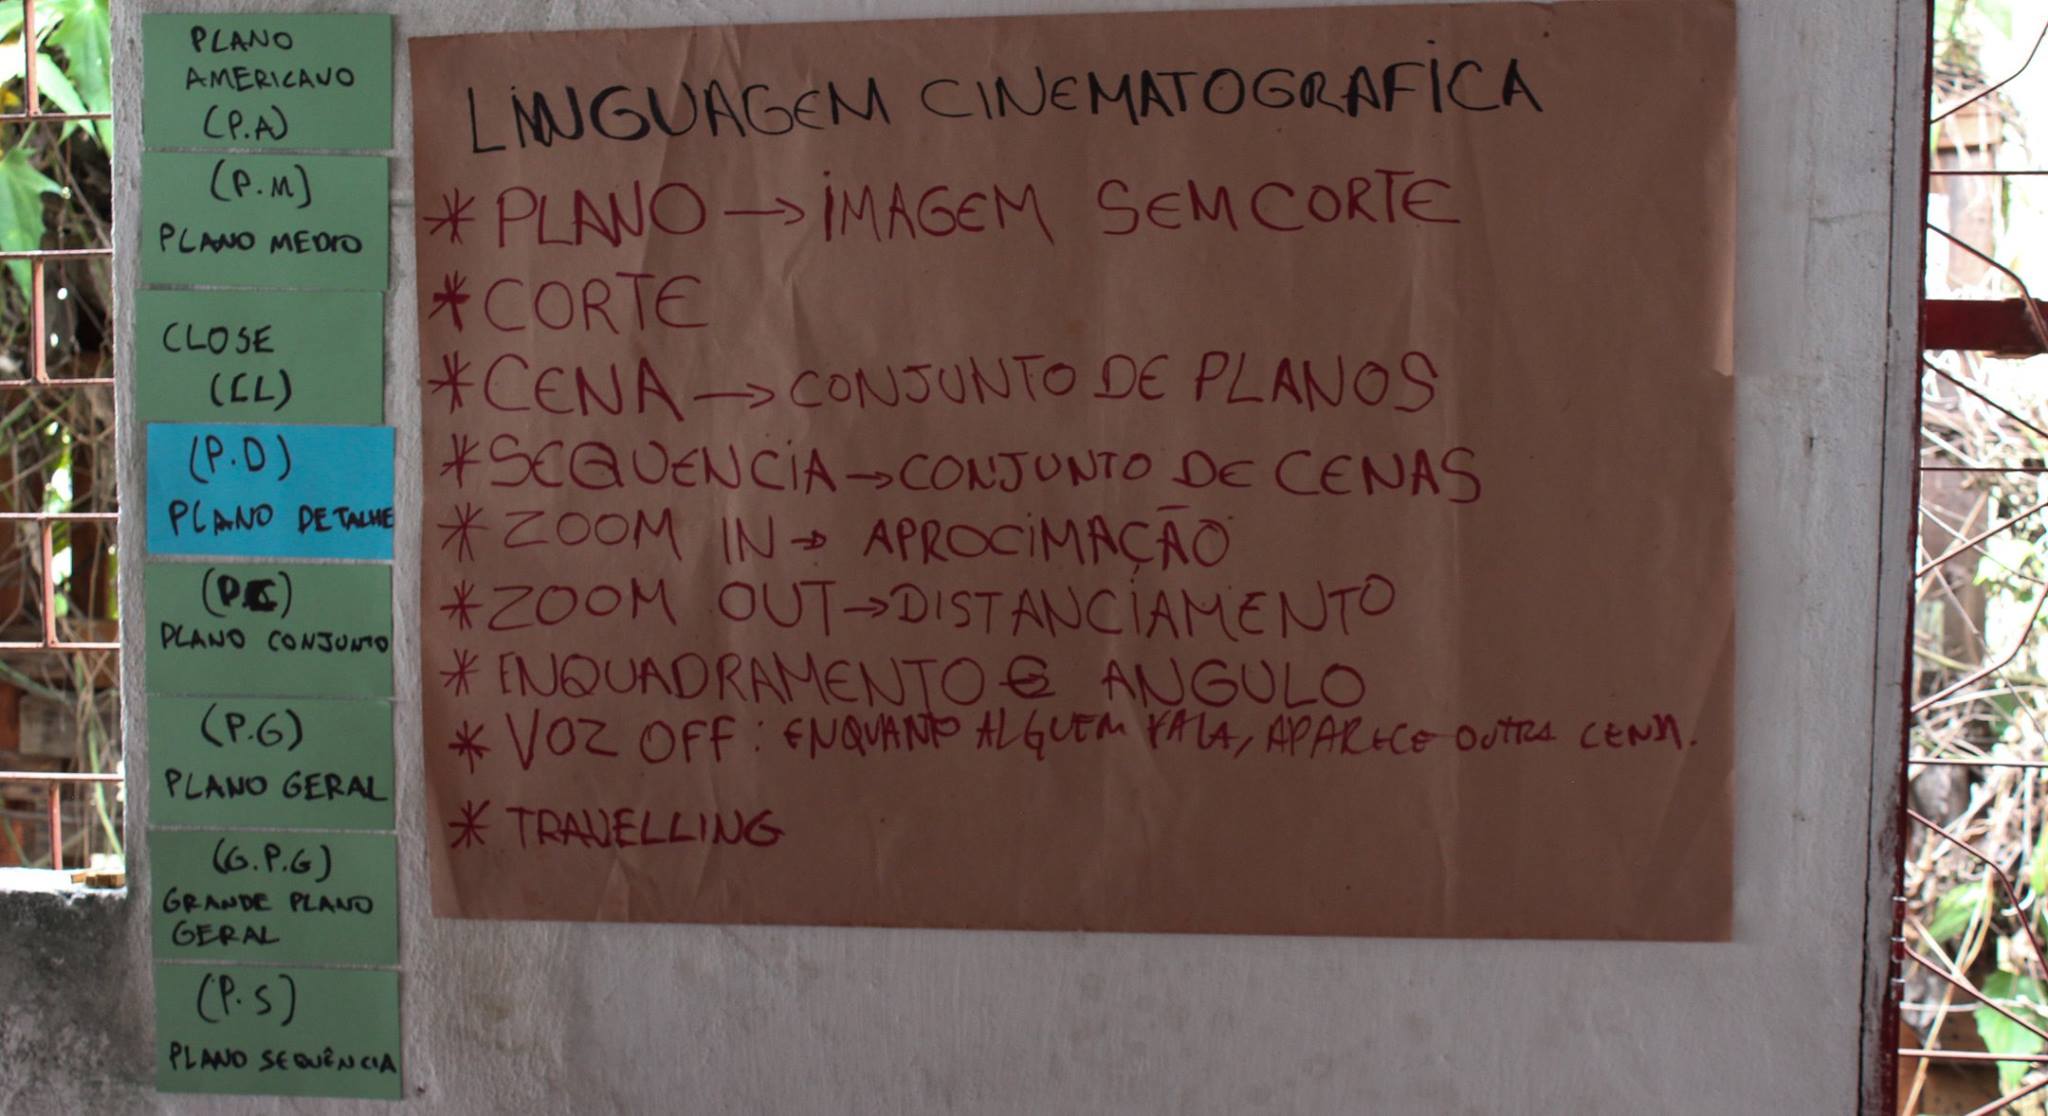 PLANO
AMERICANO
(P.A)
(P.M)
PLANO MEDIO
CLOSE
(CL)
(P.D)
PLANO DETALHE
(P.C)
PLANO CONJUNTO
(P.G)
PLANO GERAL
(G.P.G)
GRANDE PLANO
GERAL
(P.S)
PLANO SEQUÊNCIA
LINGUAGEM CINEMATOGRAFICA
* PLANO → IMAGEM SEM CORTE
* CORTE
* CENA → CONJUNTO DE PLANOS
* SEQUENCIA → CONJUNTO DE CENAS
* ZOOM IN → APROCIMAÇÃO
* ZOOM OUT → DISTANCIAMENTO
* ENQUADRAMENTO E ANGULO
* VOZ OFF: ENQUANTO ALGUEM FALA, APARECE OUTRA CENA.
* TRAVELLING